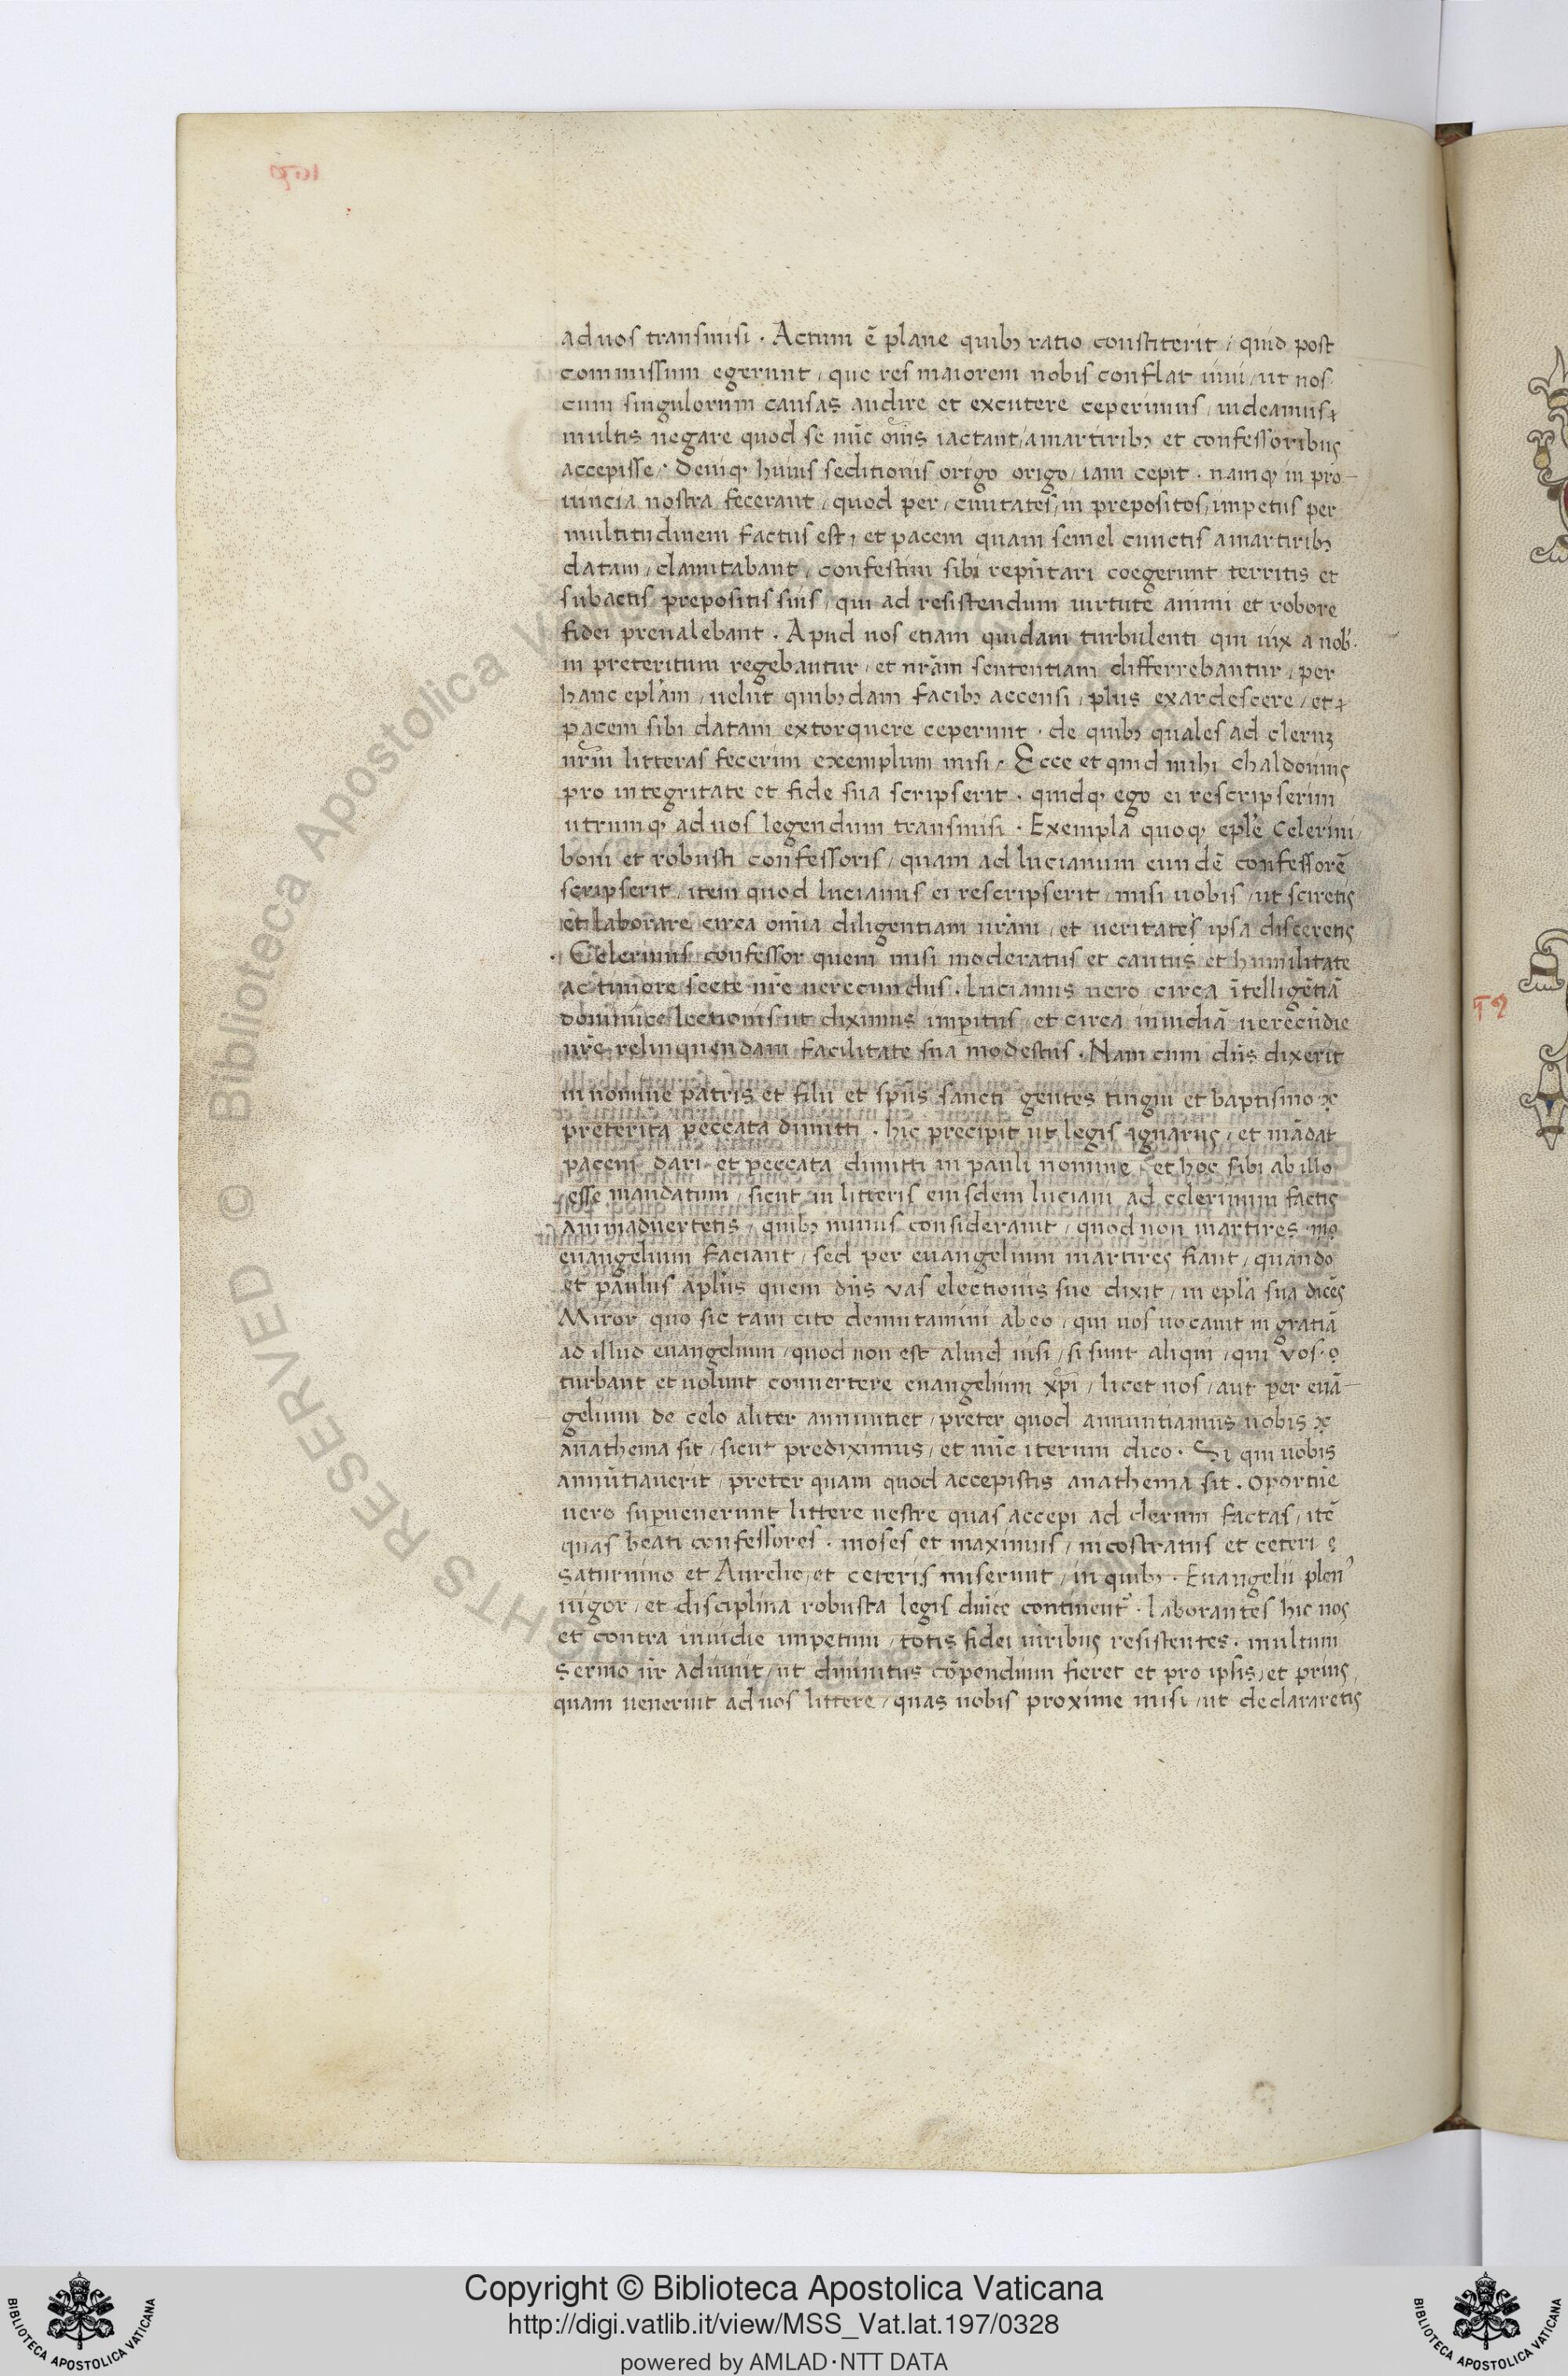 ad uos transmisi . Actum ē plane quibꝫ ratio constiterit / quid post
commissum egerunt / que res maiorem nobis conflat ī ut nos
cum singulorum causas audire et excutere ceperimus / uideamus
multis negare quod se nūc oīs iactant / a martiribꝫ et confessoribus
accepisse . deniqꝫ huius seditionis origo origo / iam cepit . namqꝫ in pro-
uincia nostra fecerant / quod per / ciuitates / in prepositos / impetus per
multitudinem factus est , et pacem quam semel cunctis a martiribꝫ
datam / clamitabant / confestim sibi repūtari coegerunt territis et
subactis prepositis suis / qui ad resistendum uirtute animi et robore
fidei preualebant . Apud nos etiam quidam turbulenti qui uix a nob .
in preteritum regebantur / et nrām sententiam differrebantur / per
hanc eplām / uelut quibꝫdam facibꝫ accensi / plus exardescere / et
pacem sibi datam extorquere ceperunt . de quibꝫ quales ad cleruꝫ
nrm litteras fecerim exemplum misi . Ecce et quid mihi chaldonius
pro integritate et fide sua scripserit . quidqꝫ ego ei rescripserim
utrumqꝫ ad uos legendum transmisi . Exempla quoqꝫ eplē Celerini
boni et robusti confessoris / quam ad lucianum eundē confessorē
scripserit / item quod lucianus ei rescripserit / misi uobis / ut sciretis
et laborare circa omīa diligentiam nrām / et ueritates ipsa disceretis
. Celerinus confessor quem misi moderatus et cautus et humilitate
ac timore secte nrē uerecundus . Lucianus uero circa ītelligētiā
dominice lectionis ut diximus imperitus / et circa inuidiā uerecūdie
nrē relinquendam facilitate sua modestus . Nam cum dn̄s dixerit
in nomine patris et filii et sp̄us sancti gentes tingui et baptismo
preterita peccata dimitti . hic precipit ut legis ignarus / et mādat
pacem dari et peccata dimitti in pauli nomine / et hoc sibi ab illo
esse mandatum / sicut in litteris eiusdem luciani ad celerinum factis
animaduertetis / quibꝫ minus considerauit / quod non martires
euangelium faciant / sed per euangelium martires fiant / quando
et paulus aplūs quem dn̄s vas electionis sue dixit / in eplā sua dicēs
Miror quo sic tam cito demutamini ab eo / qui uos uocauit in gratiā
ad illud euangelium / quod non est aliud nisi / si sunt aliqui / qui vos
turbant et uolunt conuertere euangelium xp̄i / licet nos / aut per euā-
gelium de celo aliter annuntiet / preter quod annuntiamus uobis
anathema sit / sicut prediximus / et nūc iterum dico . Si qui uobis
annūtiauerit / preter quam quod accepistis anathema sit . oportūe
uero superuenerunt littere uestre quas accepi ad clerum factas / itē
quas beati confessores . moses et maximus / nicostratus et ceteri
saturnino et Aurelio et ceteris miserunt / in quibꝫ . Euangelii plen
uigor / et disciplina robusta legis duīce continent . laborantes hic nos
et contra inuidie impetum / totis fidei uiribus resistentes . multum
sermo nr̄ adiuuit / ut diuinitus cōpendium fieret et pro ipsis / et prius
quam uenerint ad uos littere / quas uobis proxime misi / ut declararetis
52
© Biblioteca Apostolica
RESERVED
RIGHTS
Copyright © Biblioteca Apostolica Vaticana
http://digi.vatlib.it/view/MSS_Vat.lat.197/0328
powered by AMLAD·NTT DATA
BIBLIOTECA APOSTOLICA VATICANA
BIBLIOTECA APOSTOLICA VATICANA